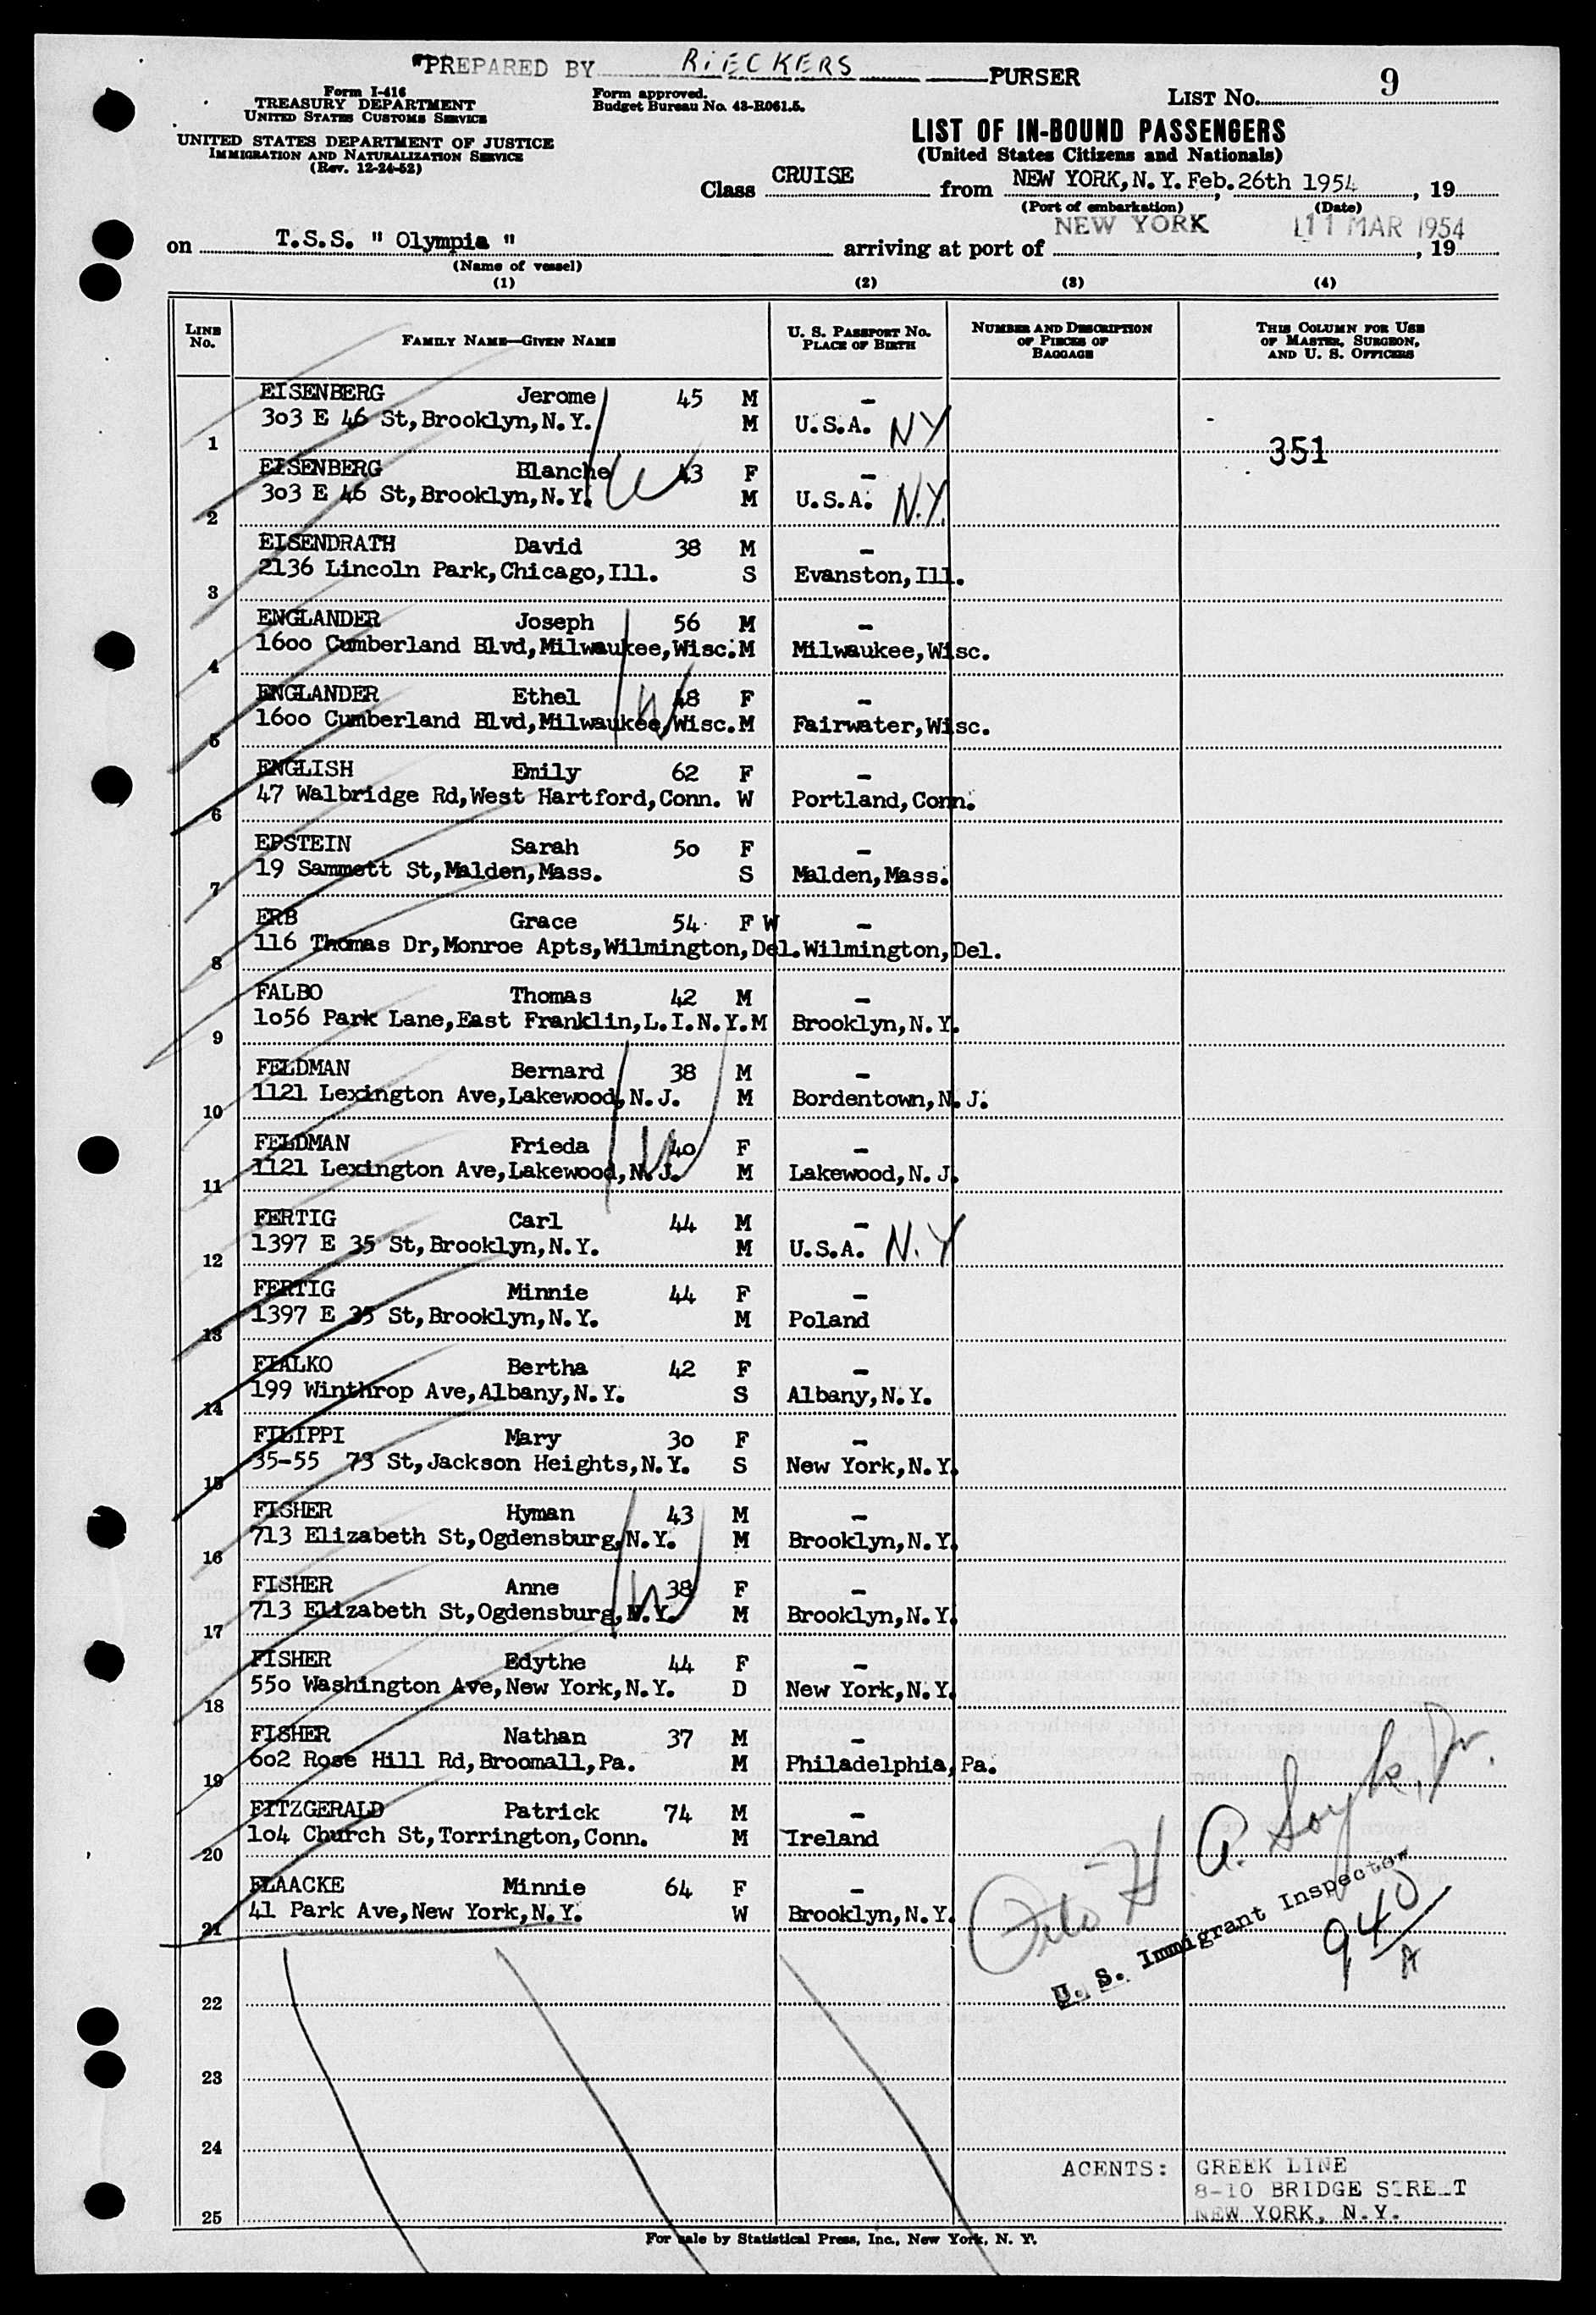 "PREPARED BY RIECKERS PURSER
Form I-416
TREASURY DEPARTMENT
UNITED STATES CUSTOMS SERVICE
UNITED STATES DEPARTMENT OF JUSTICE
IMMIGRATION AND NATURALIZATION SERVICE
(Rev. 12-24-52)
Form approved.
Budget Bureau No. 43-R061.5.
LIST No. 9
LIST OF IN-BOUND PASSENGERS
(United States Citizens and Nationals)
Class CRUISE from NEW YORK, N.Y. Feb. 26th 1954, 19
(Port of embarkation) (Date)
on T.S.S. " Olympia " arriving at port of NEW YORK 11 MAR 1954, 19
(Name of vessel)
(1) (2) (3) (4)
LINE No. FAMILY NAME—GIVEN NAME U. S. PASSPORT No. PLACE OF BIRTH NUMBER AND DESCRIPTION OF PIECES OF BAGGAGE THIS COLUMN FOR USE OF MASTER, SURGEON, AND U. S. OFFICERS
EISENBERG Jerome 45 M -
1 303 E 46 St, Brooklyn, N.Y. M U.S.A. NY 351
EISENBERG Blanche 43 F -
2 303 E 46 St, Brooklyn, N.Y. M U.S.A. N.Y.
EISENDRATH David 38 M -
3 2136 Lincoln Park, Chicago, Ill. S Evanston, Ill.
ENGLANDER Joseph 56 M -
4 1600 Cumberland Blvd, Milwaukee, Wisc. M Milwaukee, Wisc.
ENGLANDER Ethel 48 F -
5 1600 Cumberland Blvd, Milwaukee, Wisc. M Fairwater, Wisc.
ENGLISH Emily 62 F -
6 47 Walbridge Rd, West Hartford, Conn. W Portland, Conn.
EPSTEIN Sarah 50 F -
7 19 Sammett St, Malden, Mass. S Malden, Mass.
ERB Grace 54 F W -
8 116 Thomas Dr, Monroe Apts, Wilmington, Del. Wilmington, Del.
FALBO Thomas 42 M -
9 1056 Park Lane, East Franklin, L.I.N.Y. M Brooklyn, N.Y.
FELDMAN Bernard 38 M -
10 1121 Lexington Ave, Lakewood, N.J. M Bordentown, N.J.
FELDMAN Frieda 40 F -
11 1121 Lexington Ave, Lakewood, N.J. M Lakewood, N.J.
FERTIG Carl 44 M -
12 1397 E 35 St, Brooklyn, N.Y. M U.S.A. N.Y
FERTIG Minnie 44 F -
13 1397 E 35 St, Brooklyn, N.Y. M Poland
FIALKO Bertha 42 F -
14 199 Winthrop Ave, Albany, N.Y. S Albany, N.Y.
FILIPPI Mary 30 F -
15 35-55 73 St, Jackson Heights, N.Y. S New York, N.Y.
FISHER Hyman 43 M -
16 713 Elizabeth St, Ogdensburg, N.Y. M Brooklyn, N.Y.
FISHER Anne 38 F -
17 713 Elizabeth St, Ogdensburg, N.Y. M Brooklyn, N.Y.
FISHER Edythe 44 F -
18 550 Washington Ave, New York, N.Y. D New York, N.Y.
FISHER Nathan 37 M -
19 602 Rose Hill Rd, Broomall, Pa. M Philadelphia, Pa.
FITZGERALD Patrick 74 M -
20 104 Church St, Torrington, Conn. M Ireland
FLAACKE Minnie 64 F -
21 41 Park Ave, New York, N.Y. W Brooklyn, N.Y.
U. S. Immigrant Inspector
940
A
22
23
24
25
AGENTS: GREEK LINE
8-10 BRIDGE STREET
NEW YORK, N.Y.
For sale by Statistical Press, Inc., New York, N. Y.